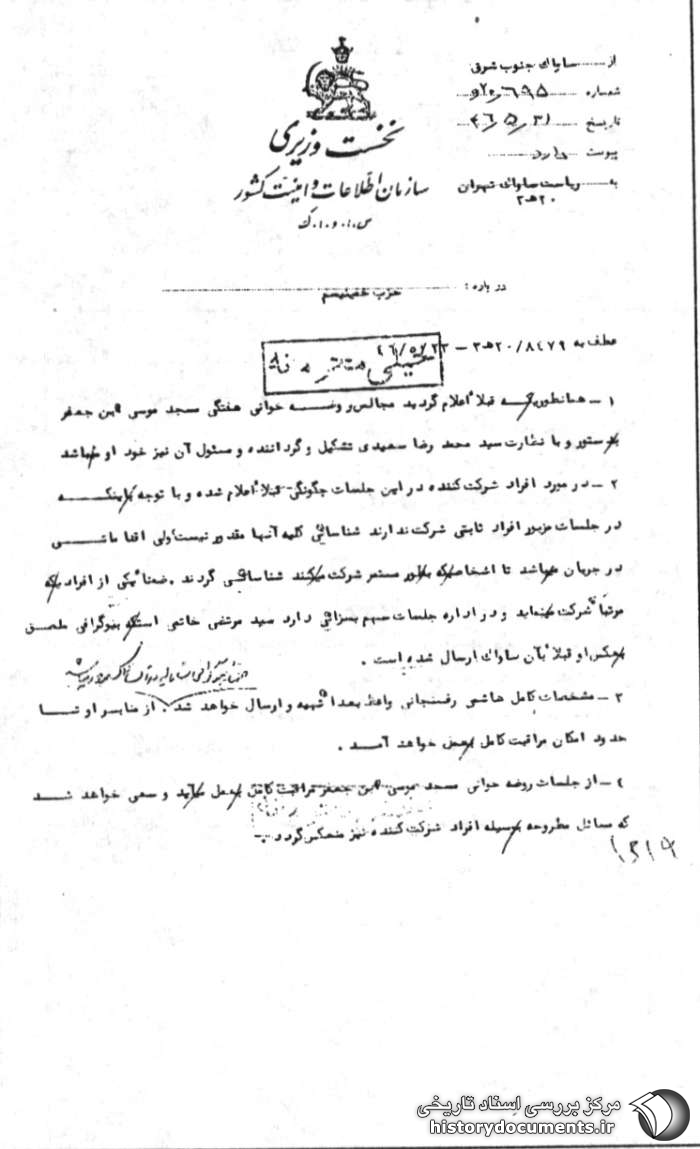 از ساواک جنوب شرق
شماره ۶۹۵
تاریخ ۴۶/۵/۳۱
پیوست دارد
به ریاست ساواک تهران
۲۰ ه‍ ۳
نخست وزیری
سازمان اطلاعات و امنیت کشور
س.ا.و.ا.ک
درباره : حزب خمینیسم
عطف به ۸۴۷۹/ ۲۰ه‍۳ – ۴۶/۵/۲۲
خیلی محرمانه
۱ – همانطوریکه قبلاً اعلام گردید مجالس روضه خوانی هفتگی مسجد موسی ابن جعفر
بدستور و با نظارت سید محمد رضا سعیدی تشکیل و گرداننده و مسئول آن نیز خود او میباشد
۲ – در مورد افراد شرکت کننده در این جلسات چگونگی قبلاً اعلام شده و با توجه باینکه
در جلسات مزبور افراد ثابتی شرکت ندارند شناسائی کلیه آنها مقدور نیست ولی اقداماتی
در جریان میباشد تا اشخاصیکه بطور مستمر شرکت میکنند شناسائی گردند . ضمناً یکی از افرادیکه
مرتباً شرکت مینماید و در اداره جلسات سهم بسزائی دارد سید مرتضی خاتمی استکه بیوگرافی ملصق
بعکس او قبلاً بآن ساواک ارسال شده است .
۳ – مشخصات کامل هاشمی رفسنجانی واعظ بعداً تهیه و ارسال خواهد شد . از منابر او تا
حدود امکان مراقبت کامل بعمل خواهد آمد .
۴ – از جلسات روضه خوانی مسجد موسی ابن جعفر مراقبت کامل بعمل میآید و سعی خواهد شد
که مسائل مطروحه بوسیله افراد شرکت کننده نیز منعکس گردد .
مرکز بررسی اسناد تاریخی
historydocuments.ir